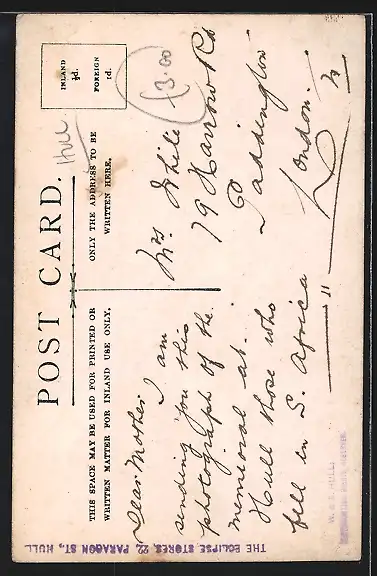 POST CARD.
THIS SPACE MAY BE USED FOR PRINTED OR
WRITTEN MATTER FOR INLAND USE ONLY.
ONLY THE ADDRESS TO BE
WRITTEN HERE.
INLAND
½d.
FOREIGN
1d.
Hull
£3.00
Dear Mother
I am
sending you this
photograph of the
memorial at
Hull those who
fell in S. Africa
Mrs While
79 Harrow Rd
Paddington
London.
W
THE ECLIPSE STORES, 22, PARAGON ST., HULL